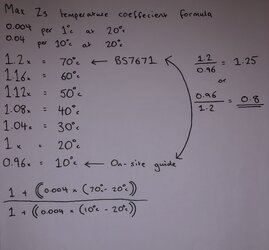 Max Zs temperature coefficient formula
0.004 per 1°c at 20°c
0.04 per 10°c at 20°c
1.2x = 70°c ← BS7671
1.16x = 60°c
1.12x = 50°c
1.08x = 40°c
1.04x = 30°c
1x = 20°c
0.96x = 10°c ← On-site guide
1.2 / 0.96 = 1.25
or
0.96 / 1.2 = 0.8
1 + ((0.004 x (70° - 20°c))
1 + ((0.004 x (10°c - 20°c))